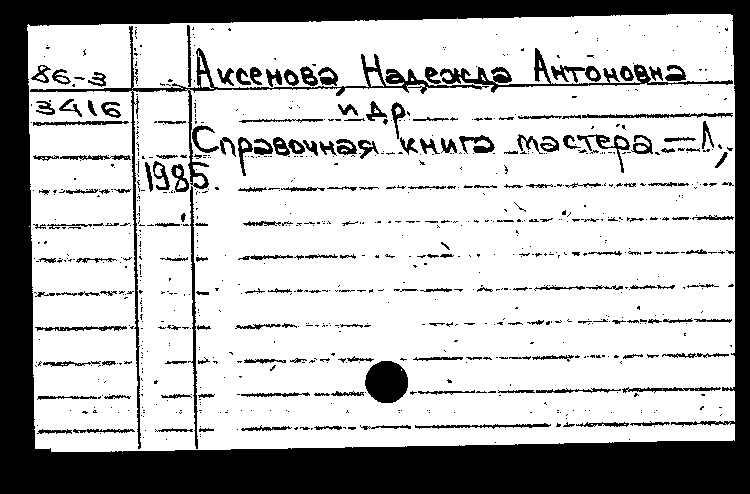 86-3
3416
Аксенова, Надежда Антоновна
и др.
Справочная книга мастера — Л.,
1985.